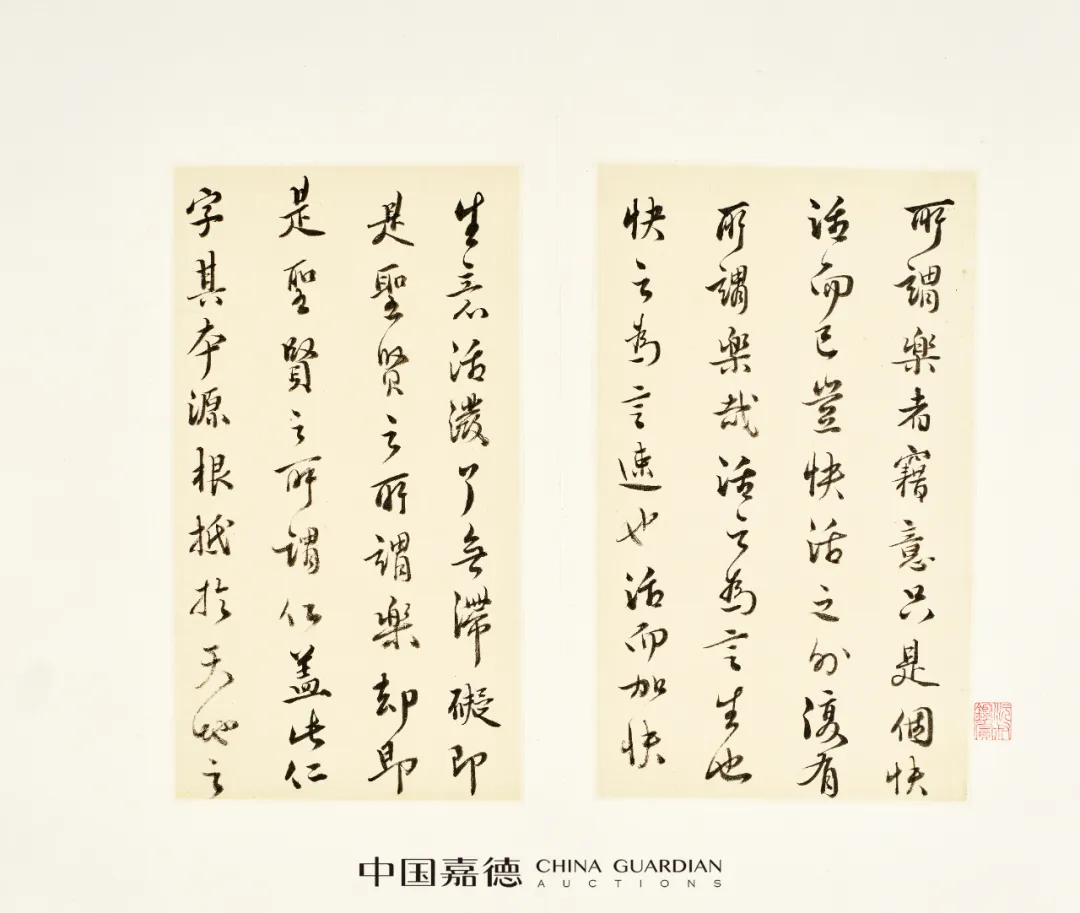 所謂樂者竊意只是個快
活而已豈快活之外復有
所謂樂哉活之為言生也
快之為言速也活而加快
生意活潑了無滯礙即
是聖賢之所謂樂却即
是聖賢之所謂仁蓋此仁
字其本源根抵於天地之
中国嘉德 CHINA GUARDIAN
AUCTIONS